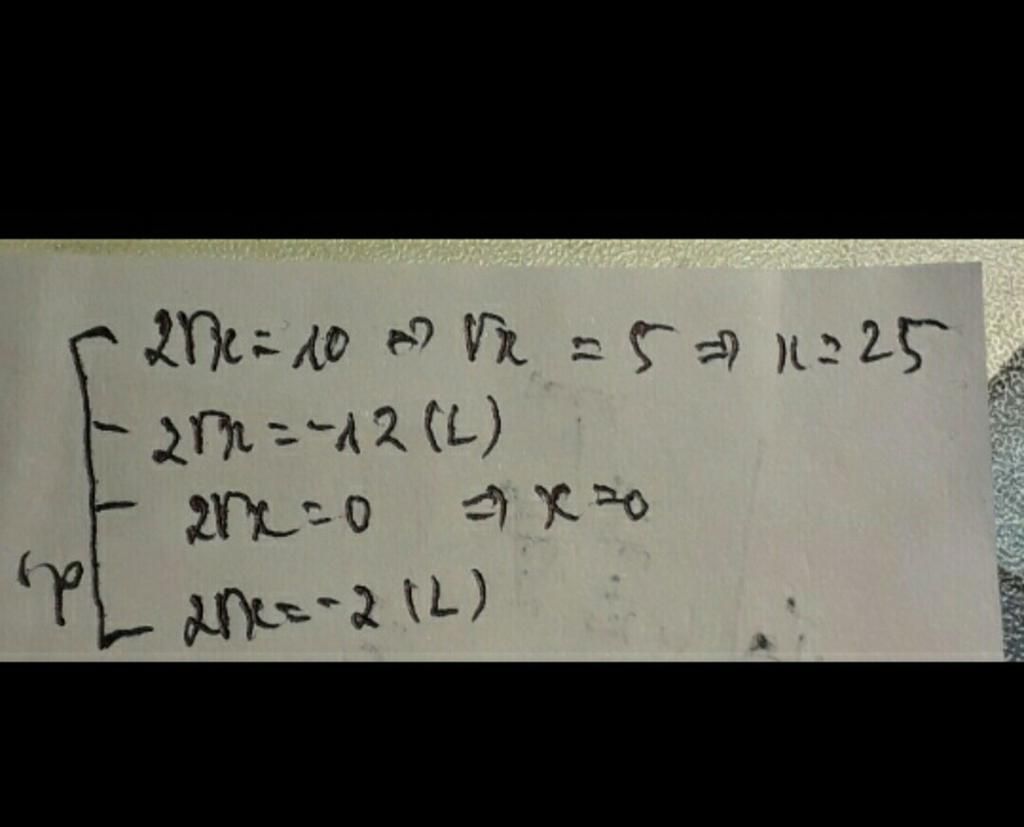 2√x = 10 ⇔ √x = 5 ⇒ x = 25
2√x = -12 (L)
2√x = 0 ⇒ x = 0
2√x = -2 (L)